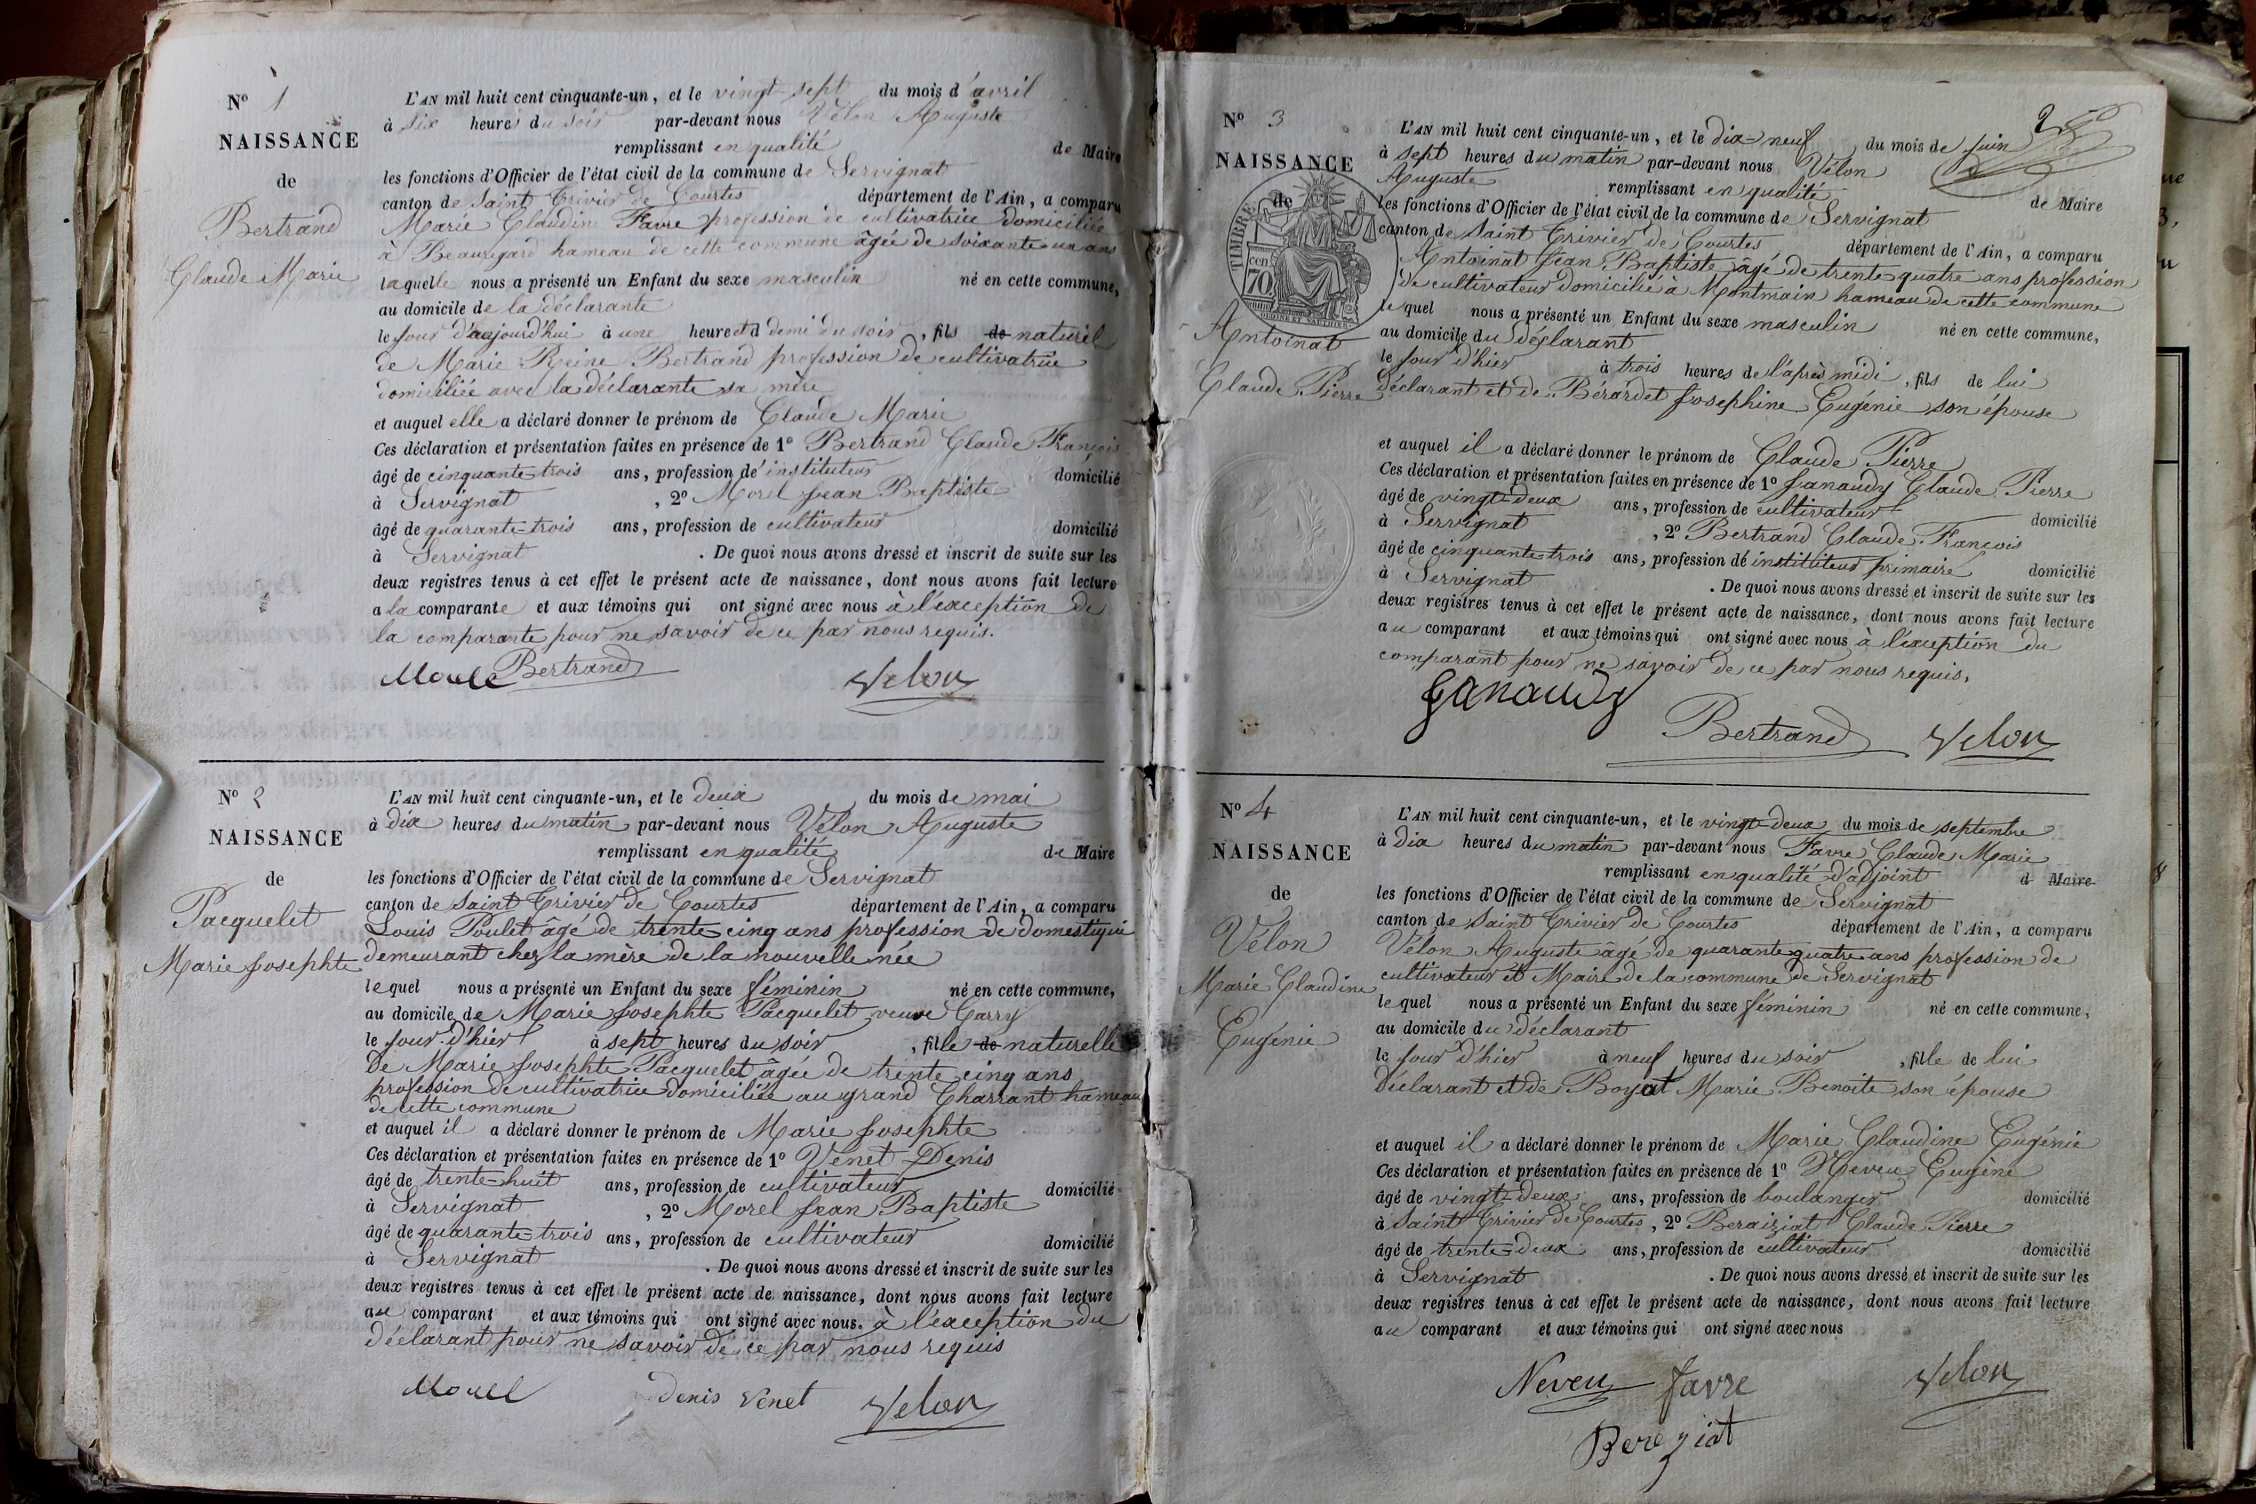 N° 1
NAISSANCE
de
Bertrand
Claude Marie
L'AN mil huit cent cinquante-un, et le vingt-sept du mois d'avril
à six heures du soir par-devant nous Vélon Auguste
remplissant en qualité de Maire
les fonctions d'Officier de l'état civil de la commune de Servignat
canton de Saint Trivier de Courtes département de l'Ain, a comparu
Marie Claudine Favre profession de cultivatrice domiciliée
à Beauregard hameau de cette commune âgée de soixante un ans
laquelle nous a présenté un Enfant du sexe masculin né en cette commune,
au domicile de la déclarante
le jour d'aujourd'hui à une heure et demi du soir, fils de naturel
de Marie Reine Bertrand profession de cultivatrice
domiciliée avec la déclarante sa mère
et auquel elle a déclaré donner le prénom de Claude Marie
Ces déclaration et présentation faites en présence de 1° Bertrand Claude François
âgé de cinquante-trois ans, profession de instituteur domicilié
à Servignat, 2° Morel Jean Baptiste
âgé de quarante-trois ans, profession de cultivateur domicilié
à Servignat. De quoi nous avons dressé et inscrit de suite sur les
deux registres tenus à cet effet le présent acte de naissance, dont nous avons fait lecture
a la comparante et aux témoins qui ont signé avec nous à l'exception de
la comparante pour ne savoir de ce par nous requis.
Morel Bertrand Velon
N° 2
NAISSANCE
de
Pacquelet
Marie Josephte
L'AN mil huit cent cinquante-un, et le deux du mois de mai
à dix heures du matin par-devant nous Vélon Auguste
remplissant en qualité de Maire
les fonctions d'Officier de l'état civil de la commune de Servignat
canton de Saint Trivier de Courtes département de l'Ain, a comparu
Louis Poulet âgé de trente cinq ans profession de domestique
demeurant chez la mère de la nouvelle née
lequel nous a présenté un Enfant du sexe féminin né en cette commune,
au domicile de Marie Josephte Pacquelet veuve Carry
le jour d'hier à sept heures du soir, fille de naturelle
De Marie Josephte Pacquelet âgée de trente cinq ans
profession de cultivatrice domiciliée au grand Charrant hameau
de cette commune
et auquel il a déclaré donner le prénom de Marie Josephte
Ces déclaration et présentation faites en présence de 1° Venet Denis
âgé de trente-huit ans, profession de cultivateur domicilié
à Servignat, 2° Morel Jean Baptiste
âgé de quarante-trois ans, profession de cultivateur domicilié
à Servignat. De quoi nous avons dressé et inscrit de suite sur les
deux registres tenus à cet effet le présent acte de naissance, dont nous avons fait lecture
au comparant et aux témoins qui ont signé avec nous. à l'exception du
déclarant pour ne savoir de ce par nous requis
Morel Denis Venet Velon
2
N° 3
NAISSANCE
de
Antoinat
Claude Pierre
TIMBRE
70 cen
L'AN mil huit cent cinquante-un, et le dix-neuf du mois de juin
à sept heures du matin par-devant nous Vélon
Auguste remplissant en qualité de Maire
les fonctions d'Officier de l'état civil de la commune de Servignat
canton de Saint Trivier de Courtes département de l'Ain, a comparu
Antoinat Jean Baptiste âgé de trente-quatre ans profession
de cultivateur domicilié à Montmain hameau de cette commune
le quel nous a présenté un Enfant du sexe masculin né en cette commune,
au domicile du déclarant
le jour d'hier à trois heures de l'après midi, fils de lui
déclarant et de Bérardet Josephine Eugénie son épouse
et auquel il a déclaré donner le prénom de Claude Pierre
Ces déclaration et présentation faites en présence de 1° Janaudy Claude Pierre
âgé de vingt-deux ans, profession de cultivateur domicilié
à Servignat, 2° Bertrand Claude François
âgé de cinquante-trois ans, profession de instituteur primaire domicilié
à Servignat. De quoi nous avons dressé et inscrit de suite sur les
deux registres tenus à cet effet le présent acte de naissance, dont nous avons fait lecture
au comparant et aux témoins qui ont signé avec nous à l'exception du
comparant pour ne savoir de ce par nous requis.
Janaudy
Bertrand Velon
N° 4
NAISSANCE
de
Vélon
Marie Claudine
Eugénie
L'AN mil huit cent cinquante-un, et le vingt-deux du mois de septembre
à dix heures du matin par-devant nous Favre Claude Marie
remplissant en qualité d'adjoint d Maire
les fonctions d'Officier de l'état civil de la commune de Servignat
canton de Saint Trivier de Courtes département de l'Ain, a comparu
Vélon Auguste âgé de quarante quatre ans profession de
cultivateur et Maire de la commune de Servignat
le quel nous a présenté un Enfant du sexe féminin né en cette commune,
au domicile du déclarant
le jour d'hier à neuf heures du soir, fille de lui
déclarant et de Boyat Marie Benoite son épouse
et auquel il a déclaré donner le prénom de Marie Claudine Eugénie
Ces déclaration et présentation faites en présence de 1° Neveu Eugène
âgé de vingt-deux ans, profession de boulanger domicilié
à Saint Trivier de Courtes, 2° Beraiziat Claude Pierre
âgé de trente-deux ans, profession de cultivateur domicilié
à Servignat. De quoi nous avons dressé et inscrit de suite sur les
deux registres tenus à cet effet le présent acte de naissance, dont nous avons fait lecture
au comparant et aux témoins qui ont signé avec nous
Neveu Favre Velon
Bereziat